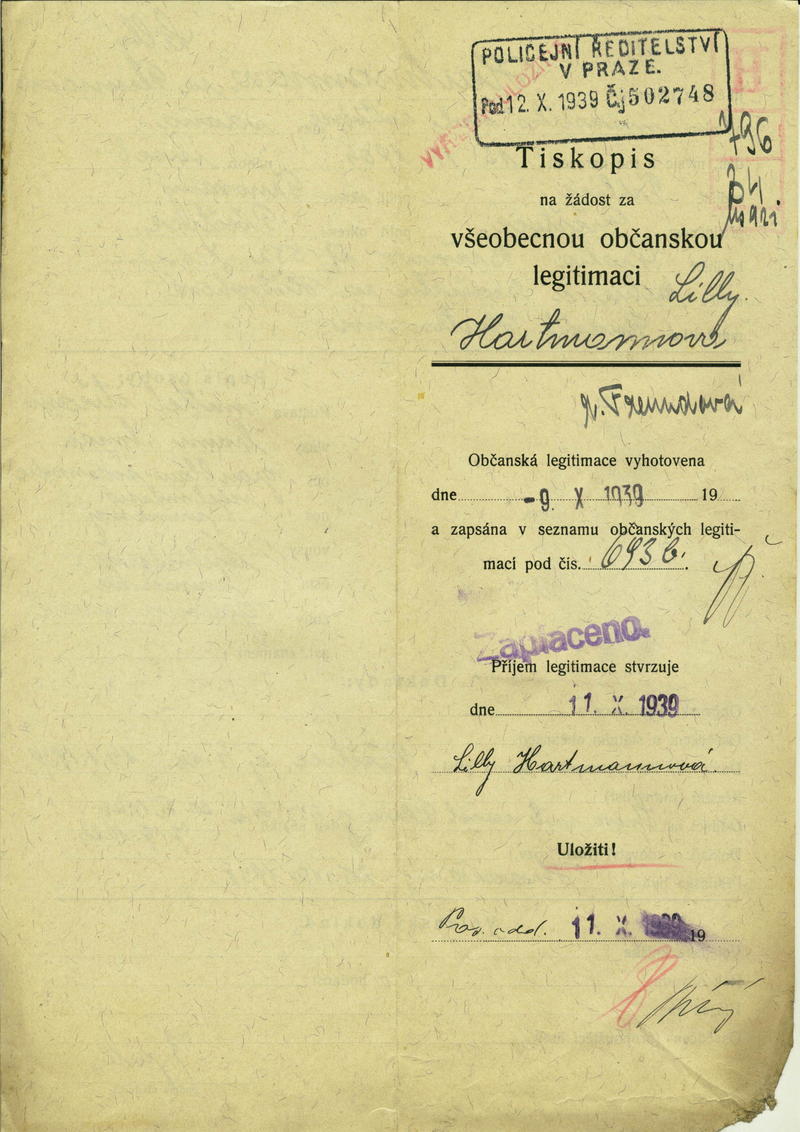 POLICEJNÍ ŘEDITELSTVÍ
V PRAZE.
Pod 12. X. 1939 Čj 502748
796
Tiskopis
na žádost za
všeobecnou občanskou
legitimaci
Lilly
Hartmannová
r. Freundová
Občanská legitimace vyhotovena
dne -9. X 1939 19
a zapsána v seznamu občanských legiti-
mací pod čís. 6936.
Zaplaceno.
Příjem legitimace stvrzuje
dne 11. X. 1939
Lilly Hartmannová.
Uložiti!
11. X. 1939 19